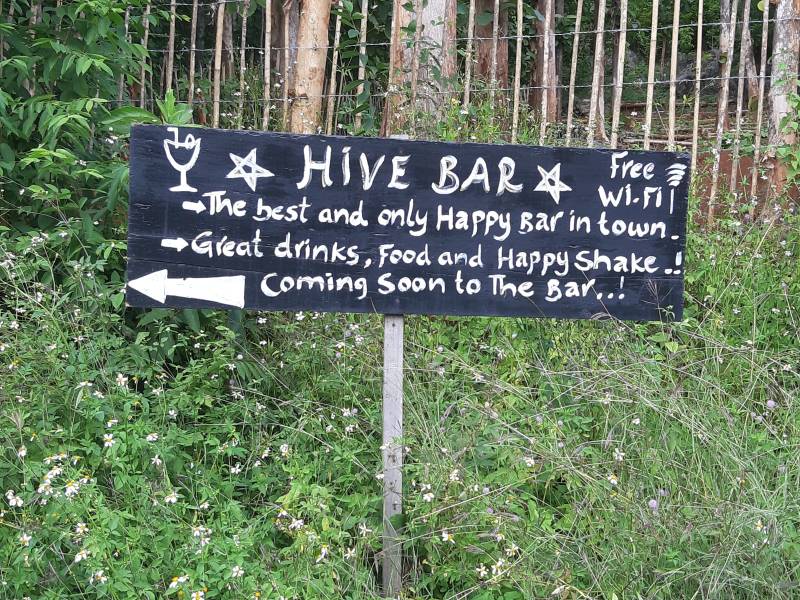 HiVE BAR
Free
Wi-Fi
The best and only Happy Bar in town.
Great drinks, Food and Happy Shake..!
Coming Soon to The Bar..!